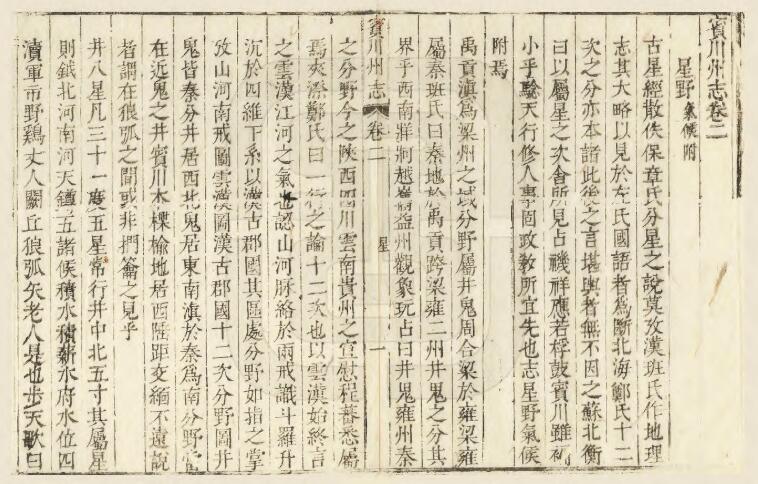 賓川州志卷二
星野氣候附
古星經散佚保章氏分星之說莫攷漢班氏作地理
志其大略以見於左氏國語者為斷北海鄭氏十二
次之分亦本諸此後之言堪輿者無不因之蘇北衡
曰以屬星之次會所見占禨祥應若桴鼓賓川雖
小乎驗天行修人事固政敎所宜先也志星野氣候
附焉
禹貢滇為梁州之域分野屬井鬼周合梁於雍梁雍
屬秦班氏曰秦地於禹貢跨梁雍二州井鬼之分其
界乎西南牂牁越嶲益州觀象玩占曰井鬼雍州秦
賓川州志 卷二 星 一
之分野今之陝西四川雲南貴州之宣慰程蕃悉屬
焉夾漈鄭氏曰一行之論十二次也以雲漢始終言
之雲漢江河之氣也認山河脉絡於兩戒識斗羅升
沉於四維下系以漢古郡國其區處分野如指之掌
攷山河南戒圖雲漢圖漢古郡國十二次分野圖井
鬼皆秦分井居西北鬼居東南滇於秦為南分野宜
在近鬼之井賓川本楪榆地居西陲距交緬不遠說
者謂在狼弧之間或非捫籥之見乎
井八星凡三十一度五星常行井中北五寸其屬星
則鉞北河南河天罇五諸侯積水積薪水府水位四
瀆軍市野鷄丈人闕丘狼弧矢老人是也步天歌曰